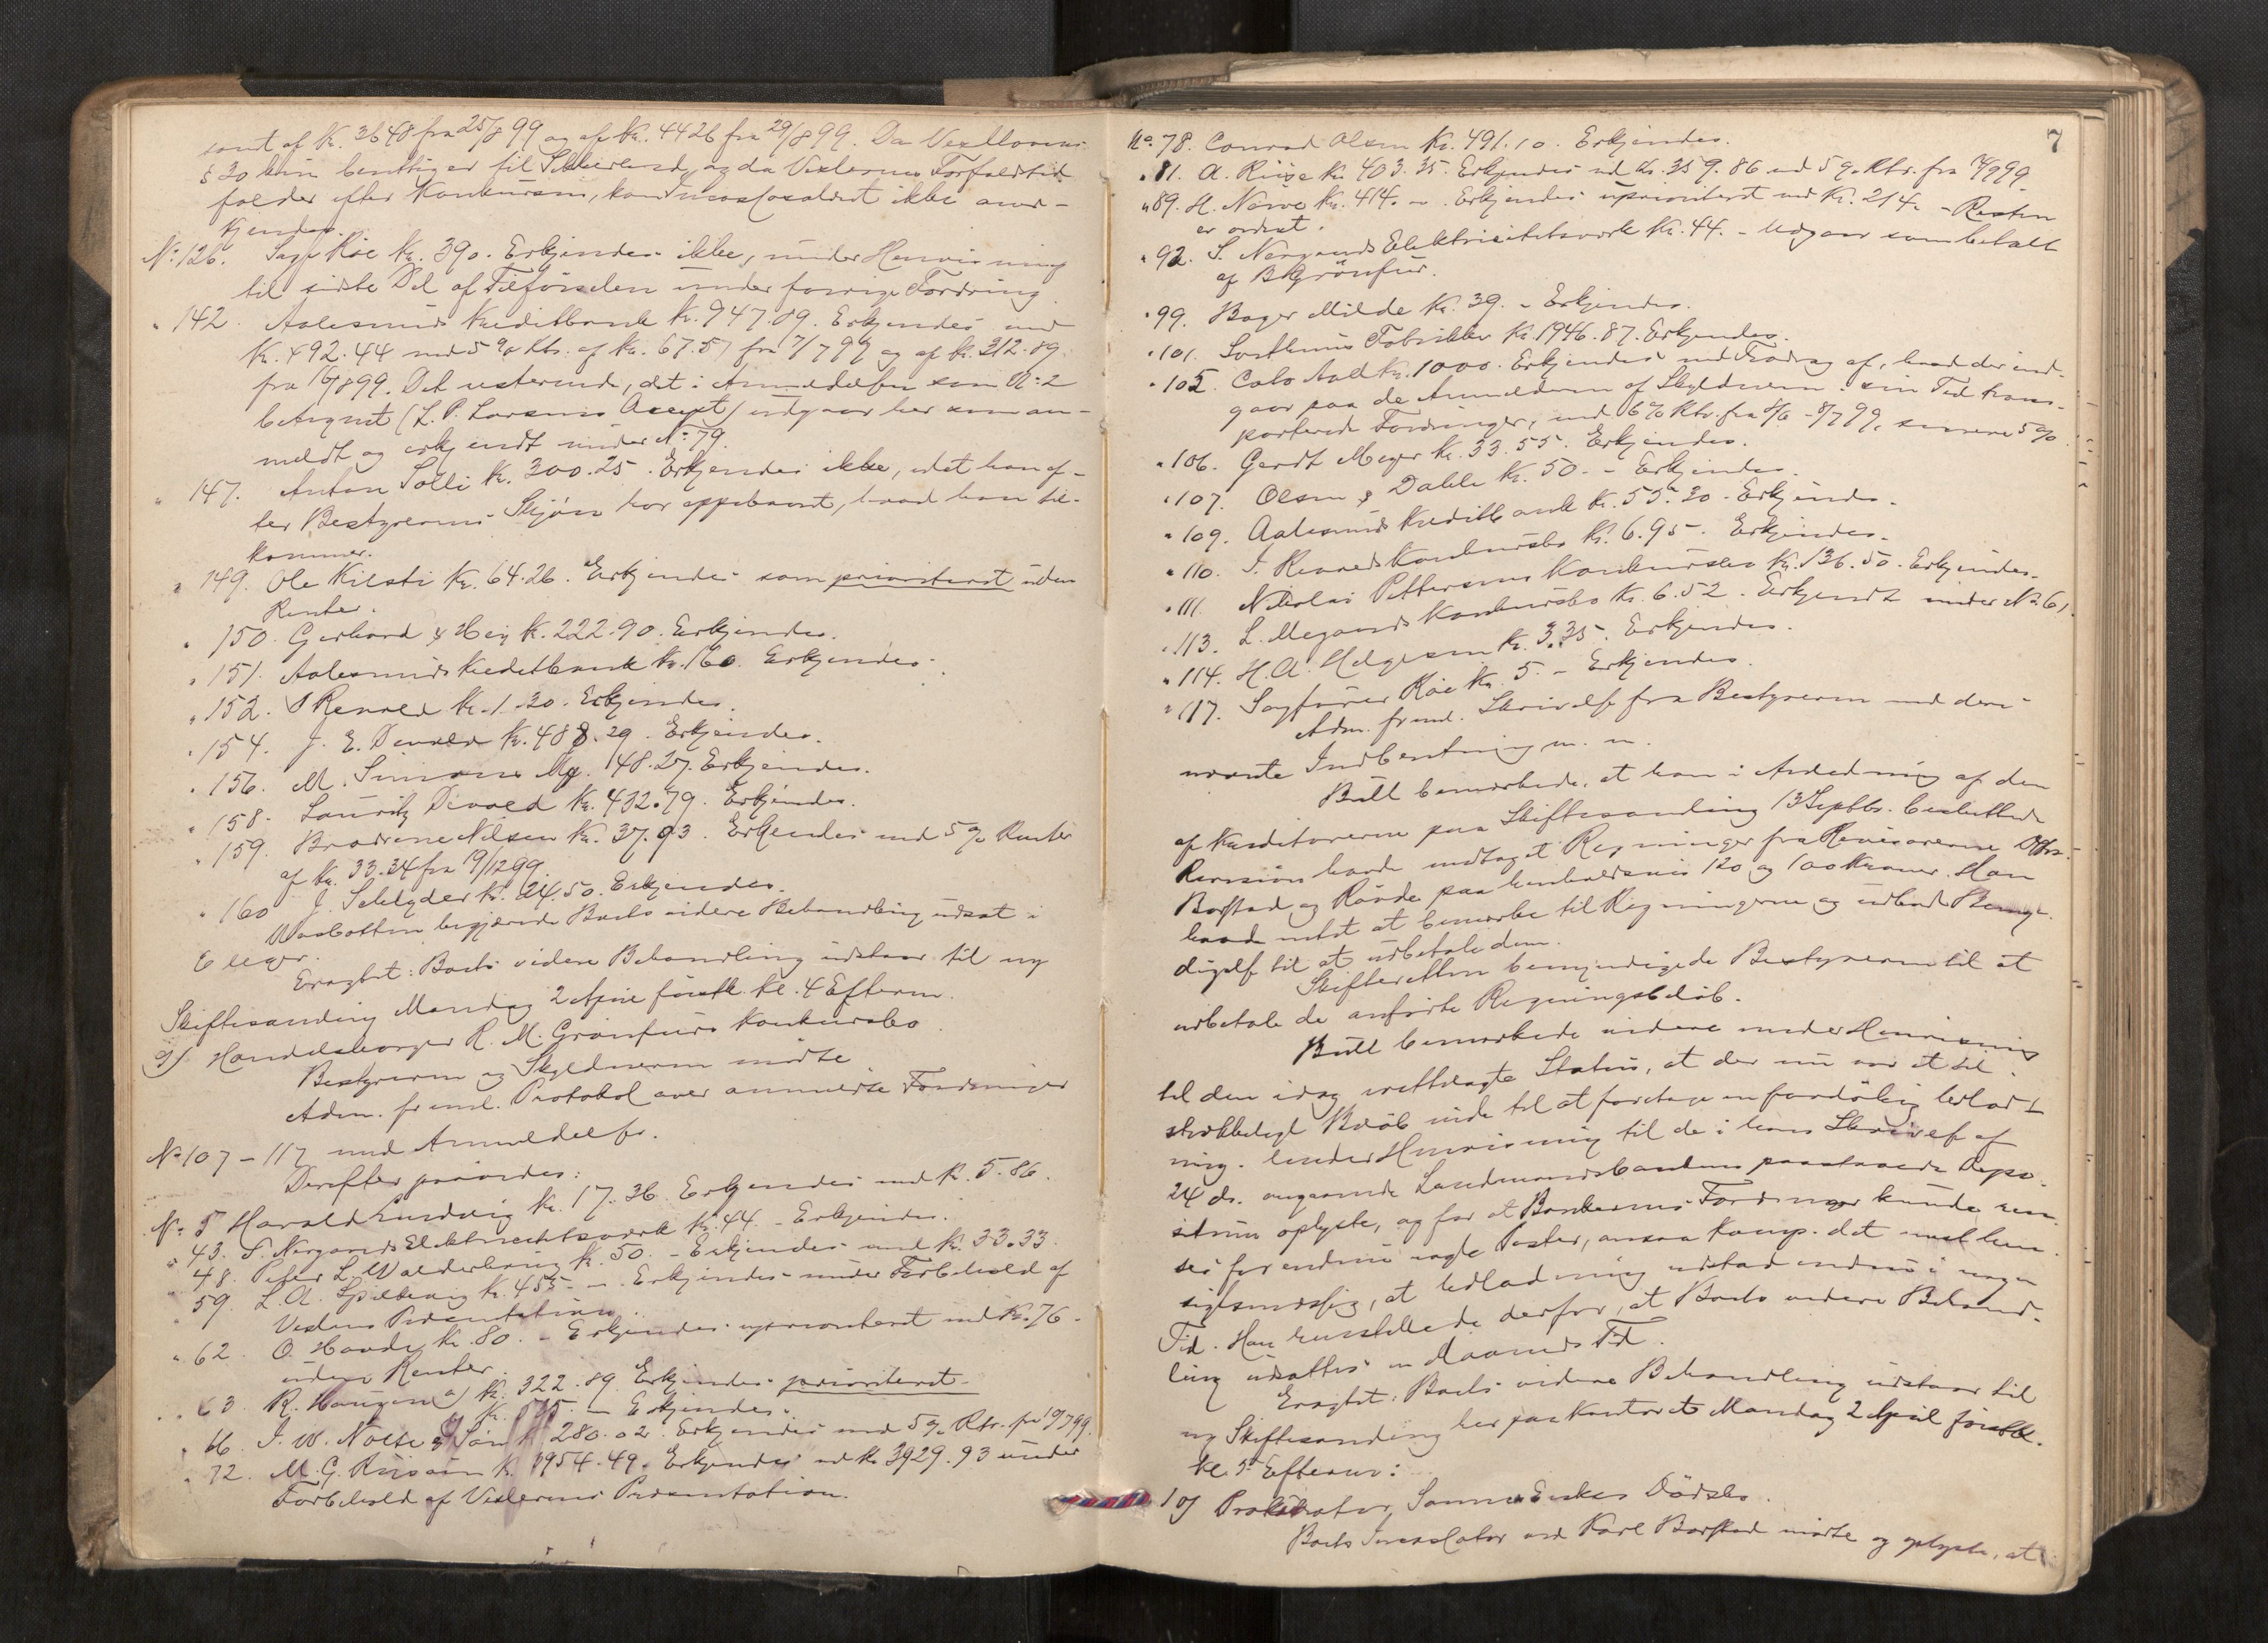 samt af Kr. 3648 fra 25/8 99 og af Kr. 4426 fra 29/8 99. Da Vexllovens
§ 30 kun til og da Vexlernes Forfaldstid
falder efter Konkursen, kan Incassosalæret ikke aner-
kjendes.
No. 126. Sagf. Röe Kr. 390. Erkjendes ikke, under Henvisning
til sidste Del af Tilførselen under forrige Fordring.
" 142. Aalesunds Kreditbank Kr. 947.09. Erkjendes med
Kr. 492.44 med 5 % Rtr. af Kr. 67.57 fra 7/7 99 og af Kr. 312.89
fra 16/8 99. Det resterende, det i Anmeldelsen som No. 2
betegnet (L. P. Larsens Accept) udgaar her som an-
meldt og erkjendt under No. 79.
" 147. Anton Solli Kr. 300.25. Erkjendes ikke, idet han ef-
ter Bestyrerens Skjøn har oppebaaret, hvad han til-
kommer.
" 149. Ole Kilsti Kr. 64.26. Erkjendes som prioriteret uden
Renter.
" 150. Gerhard & Hey Kr. 222.90. Erkjendes.
" 151. Aalesunds Kreditbank Kr. 160. Erkjendes.
" 152. Revold Kr. 1.30. Erkjendes.
" 154. J. E. Devold Kr. 488.29. Erkjendes.
" 156. M. Simons 148.27. Erkjendes.
" 158. Lauritz Devold Kr. 432.79. Erkjendes.
" 159. Brødrene Nilsen Kr. 37.93. Erkjendes med 5 % Renter
af Kr. 33.34 fra 19/12 99.
" 160 J. Schlyder Kr. 24.50. Erkjendes.
begjærede Boets videre Behandling udsat i
6 Uger.
Eragtet: Boets videre Behandling udstaar til ny
Skiftesamling Mandag 2 April førstk. Kl. 4 Efterm.
9) Handelsborger R. M. Grönfurs Konkursbo.
Bestyreren og Skyldneren mødte
Adm. freml. Protokol over anmeldte Fordringer
No. 107 – 117 med Anmeldelser.
Derefter prøvedes:
No. 5 Harald Ludvig Kr. 17.36. Erkjendes med Kr. 5.86.
" 43. S. Nørgaards Elektricitetsværk Kr. 44. – Erkjendes.
" 48. Peter L. Walderhaug Kr. 50. – Erkjendes med Kr. 33.33.
" 59. L. A. Spilkevig Kr. 455 – . Erkjendes under Forbehold af
Vexlens Præsentation.
" 62. O. Haade Kr. 80. – Erkjendes uprioriteret med Kr. 76.
uden Renter.
" 63. R. Haugen a) Kr. 322.89. Erkjendes prioriteret.
– Erkjendes.
" 66. J. W. Nolte & Søn Kr. 280.02. Erkjendes med 5 % Rtr. fra 10/7 99.
" 72. M. G. Kr. 3954.49. Erkjendes med Kr. 3929.93 under
Forbehold af Vexlernes Præsentation.
7
No. 78. Conrad Olsen Kr. 491.10. Erkjendes.
" 81. A. Riise Kr. 403.35. Erkjendes med Kr. 359.86 med 5 % Rtr. fra
" 89. H. Norve Kr. 414. – . Erkjendes uprioriteret med Kr. 214. – Resten
er ordnet.
" 92. S. Nørgaards Elektricitetsværk Kr. 44. – Udgaar som betalt
af B. Grönfur.
" 99. Bager Milde Kr. 39. – Erkjendes.
" 101. Fabrikker Kr. 1946.87. Erkjendes.
" 105. Aall Kr. 1000. Erkjendes med Fradrag af, hvad der ind-
gaar paa de Anmelderen af Skyldneren i sin Tid trans-
porterede Fordringer, med 6 % Rtr. fra 8/6 – 8/7 99, senere 5 %.
" 106. Gerdt Meyer Kr. 33.55. Erkjendes.
" 107. Olsen & Dahle Kr. 50. – Erkjendes.
" 109. Aalesunds Kreditbank Kr. 55.30. Erkjendes.
" 110. J. Revolds Konkursbo Kr. 6.95. Erkjendes.
" 111. Nikolai Pettersens Konkursbo Kr. 136.50. Erkjendes.
" 113. L. Konkursbo Kr. 6.52. Erkjendt under No. 61.
" 114. H. A. Helgesen Kr. 3.35. Erkjendes.
" 117. Sagfører Röe Kr. 5. – Erkjendes.
Adm. freml. Skrivelse fra Bestyreren med deri
nævnte Indberetning m. m.
Bull bemærkede, at han i Anledning af den
af Kreditorerne paa Skiftesamling 13 Septbr. besluttede
Revision havde modtaget Regninger fra Revisorerne
Borstad og Raade paa henholdsvis 120 og 100 Kroner. Han
havde intet at bemærke til Regningerne og udbad Bemyn-
digelse til at udbetale dem.
Skifteretten bemyndigede Bestyreren til at
udbetale de anførte Regningsbeløb.
Bull bemærkede videre under Henvisning
til den idag fremlagte Status, at der nu var et til-
strækkeligt Beløb inde til at foretage en foreløbig Udlod-
ning. Under Henvisning til de i hans Skrivelse af
24 ds. angaaende Landmandsbankens paastaaede Depo-
situm oplyste, og for at Bankernes Fordringer kunde ren-
ses for endnu nogle Poster, ansaa Komp. det mest hen-
sigtsmæssig, at Udlodning udstod endnu i nogen
Tid. Han henstillede derfor, at Boets videre Behand-
ling udsattes en Maaneds Tid.
Eragtet: Boets videre Behandling udstaar til
ny Skiftesamling her paa Kontoret Mandag 2 April førstk.
Kl. 5 Efterm:
10) Prokurator Dødsbo.
Boets Incassator ved Karl Borstad mødte og oplyste, at